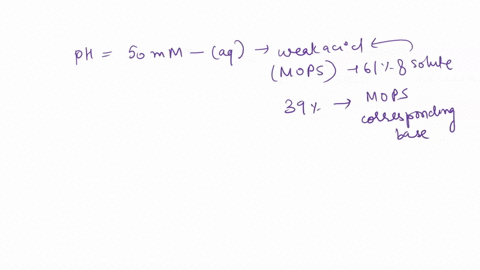 pH = 50 mM - (aq) → weak acid ←
(MOPS) → 61 % 8 solute
39 % → MOPS
corresponding
base